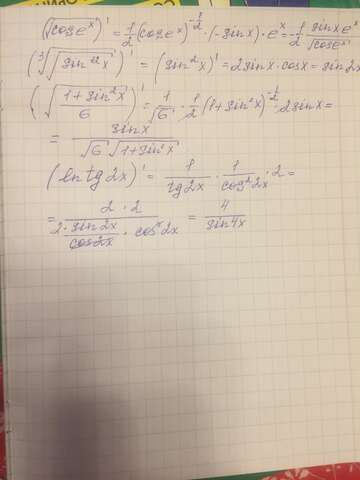 (√cos eˣ)' = 1/2 (cos eˣ)^(-1/2) · (-sin x) · eˣ = -1/2 sin x eˣ / √cos eˣ
(∛√sin¹²x)' = (sin²x)' = 2sin x · cos x = sin 2x
(√((1+sin²x)/6))' = 1/√6 · 1/2 (1+sin²x)^(-1/2) · 2sin x =
= sin x / (√6 √(1+sin²x))
(ln tg 2x)' = 1/(tg 2x) · 1/(cos²2x) · 2 =
= (2 · 2)/(2 · (sin 2x / cos 2x) · cos²2x) = 4/(sin 4x)